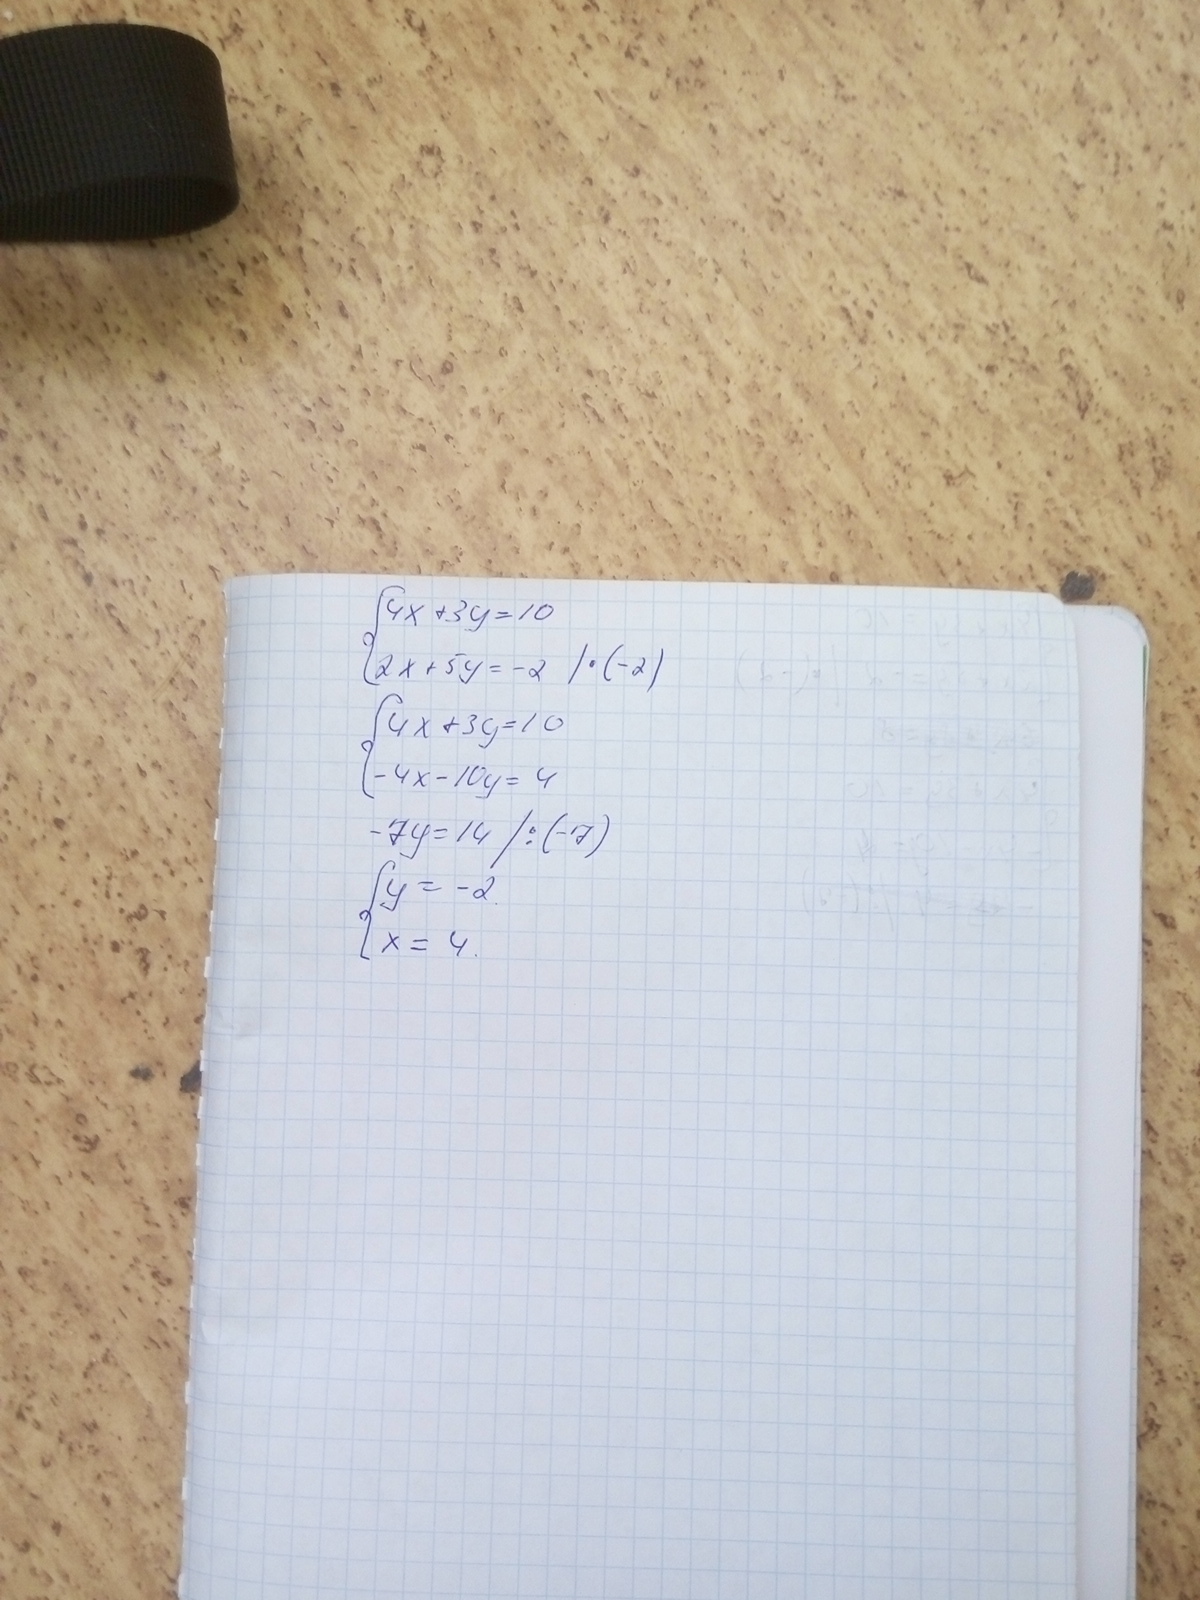 {4x+3y=10
{2x+5y=-2 /•(-2)
{4x+3y=10
{-4x-10y=4
-7y=14 /:(-7)
{y=-2.
{x=4.